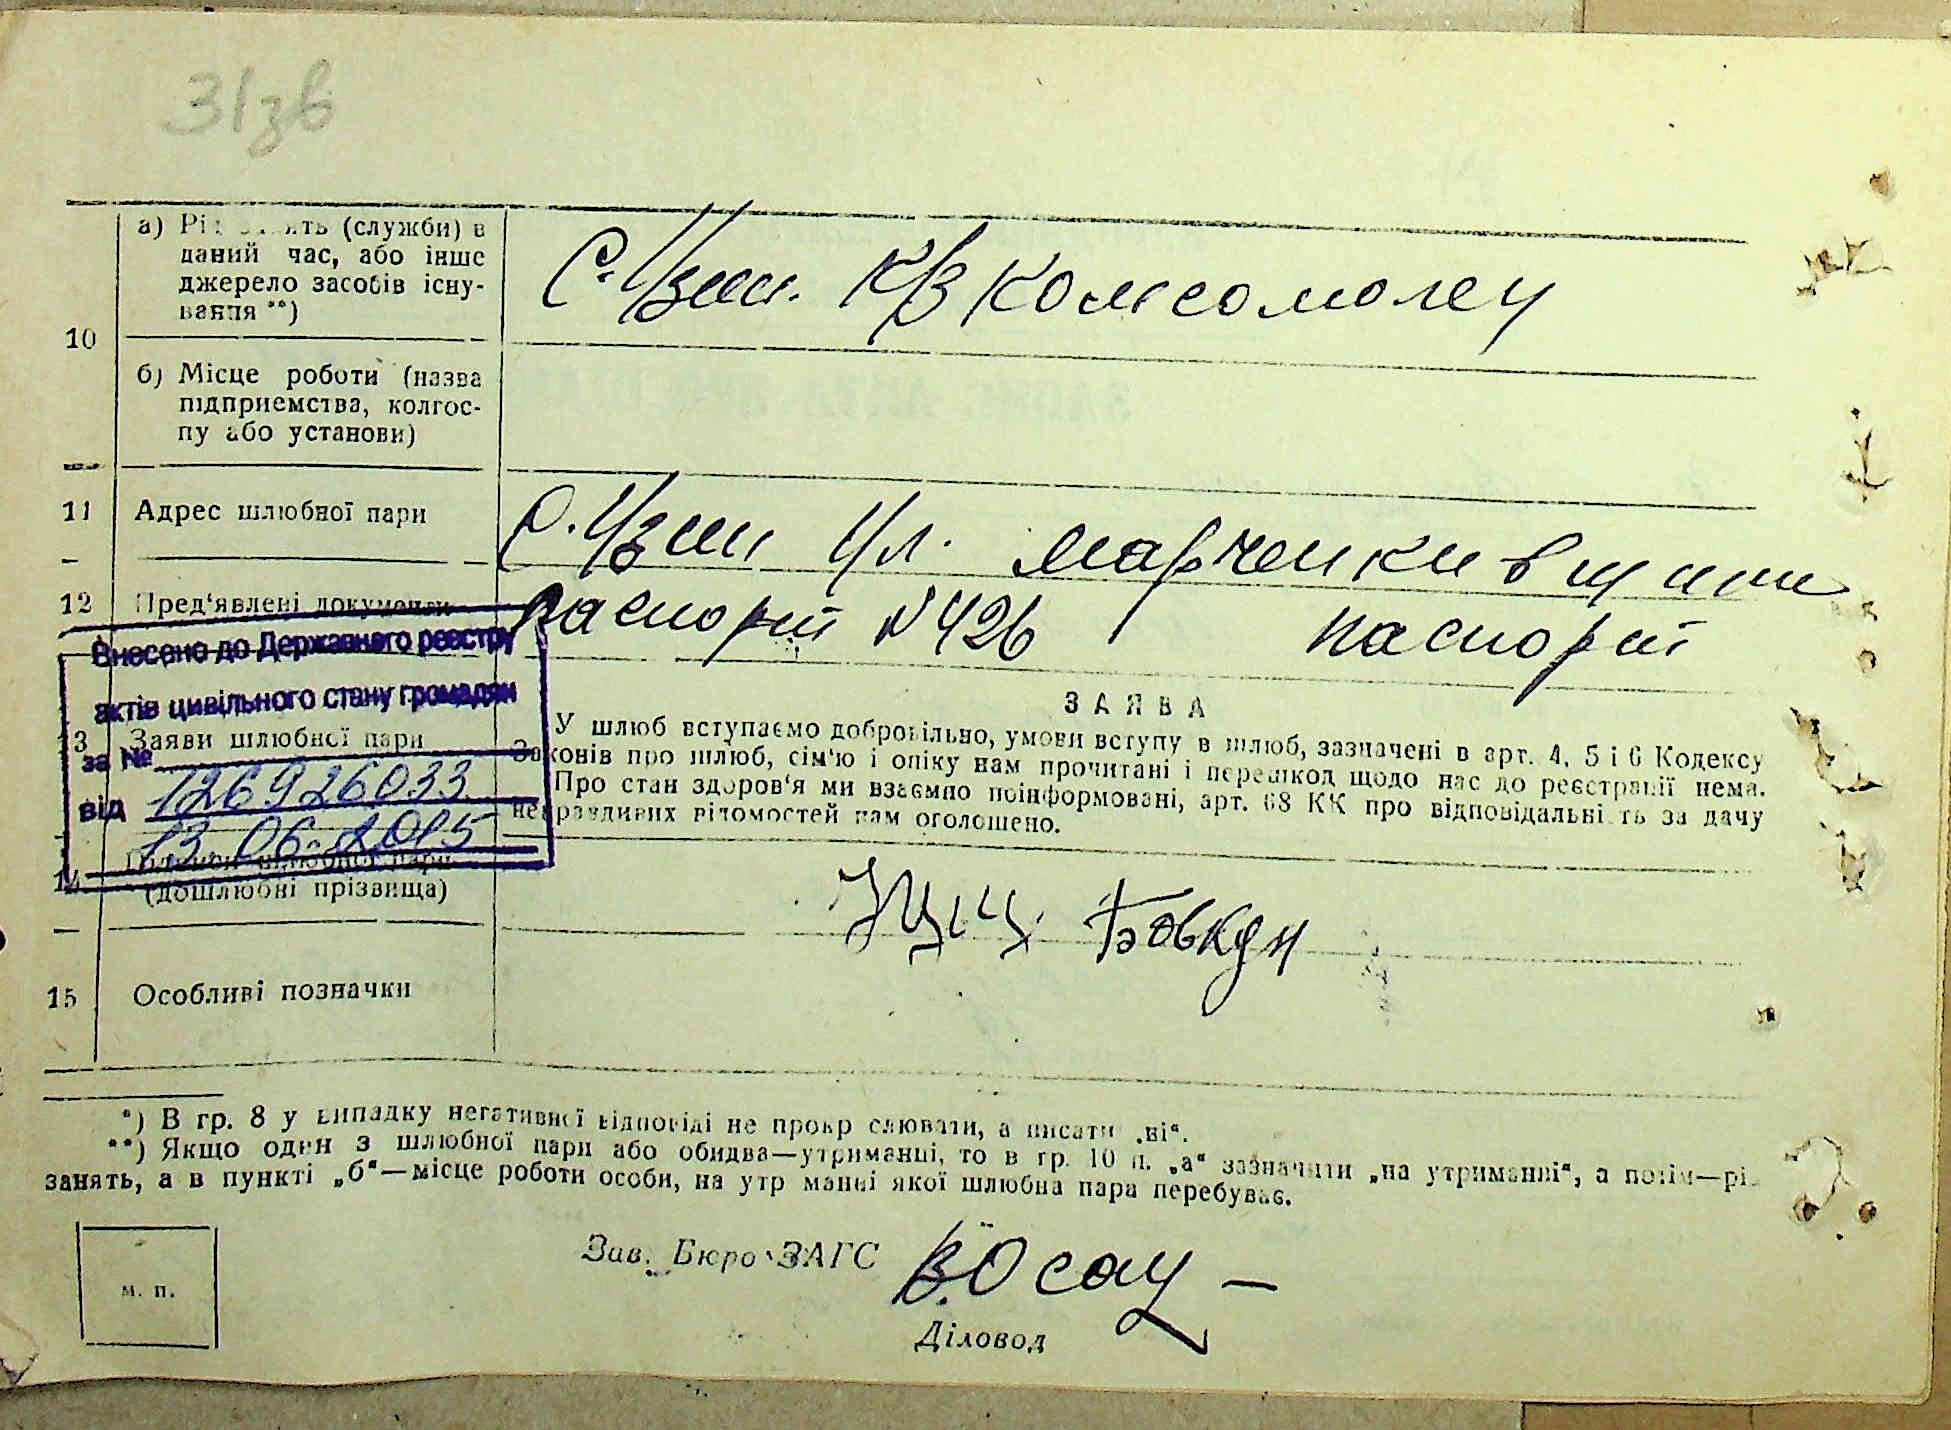 31зв
а) Рід занять (служби) в
даний час, або інше
джерело засобів існу-
вання **)
С. Узин. К/З Комсомолец
10
б) Місце роботи (назва
підприємства, колгос-
пу або установи)
11 Адрес шлюбної пари
С. Узин Ул. Марченки
12 Пред'явлені документи
паспорт №426 паспорт
Внесено до Державного реєстру
актів цивільного стану громадян
за № 126926033
від 13.06.2015
13 Заяви шлюбної пари
ЗАЯВА
У шлюб вступаємо добровільно, умови вступу в шлюб, зазначені в арт. 4, 5 і 6 Кодексу
Законів про шлюб, сім'ю і опіку нам прочитані і перешкод щодо нас до реєстрації нема.
Про стан здоров'я ми взаємно поінформовані, арт. 68 КК про відповідальність за дачу
неправдивих відомостей нам оголошено.
14 Підписи шлюбної пари
(дошлюбні прізвища)
15 Особливі позначки
*) В гр. 8 у випадку негативної відповіді не прокреслювати, а писати „ні“.
**) Якщо один з шлюбної пари або обидва—утриманці, то в гр. 10 п. „а“ зазначити „на утриманні“, а потім—рід
занять, а в пункті „б“—місце роботи особи, на утриманні якої шлюбна пара перебуває.
Зав. Бюро ЗАГС
м. п.
Діловод